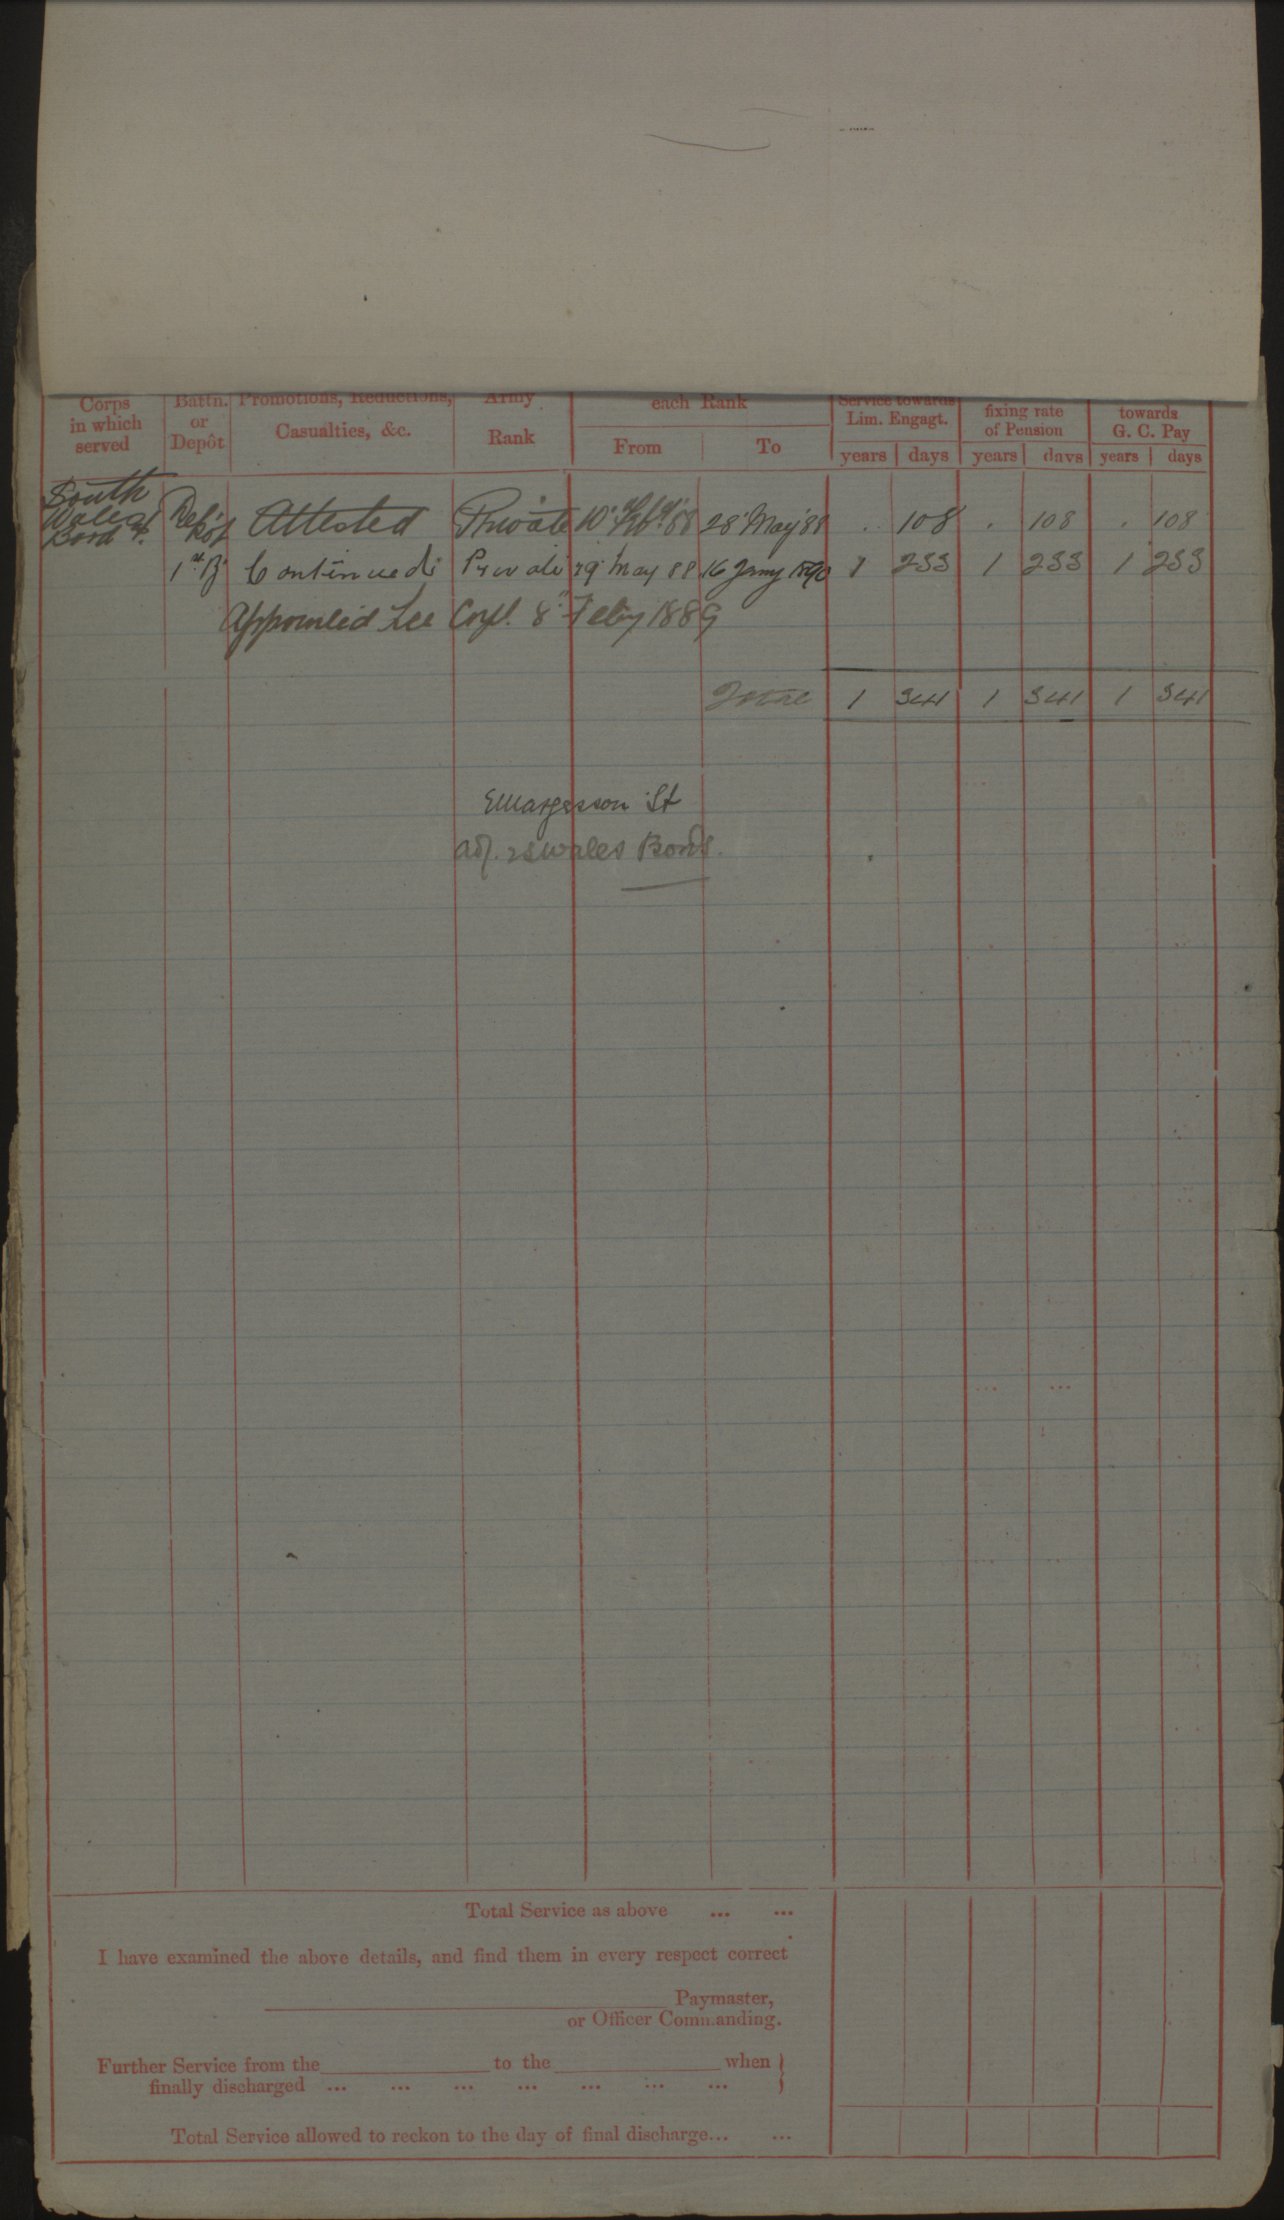 Corps in which served
Battn. or Depôt
Promotions, Reductions, Casualties, &c.
Army Rank
each Rank
From To
Service towards Lim. Engagt.
fixing rate of Pension
towards G. C. Pay
years days years days years days
South Wales Bord rs.
Depôt Attested Private 10 Feb 88 28 May 88 . 108 . 108 . 108
1st B Continued Private 29 May 88 16 Jany 1890 1 233 1 233 1 233
Appointed Lce Corpl. 8" Feby 1889
Total 1 341 1 341 1 341
EMargesson Lt
Adj. 2 S Wales Bords.
Total Service as above ... ...
I have examined the above details, and find them in every respect correct
Paymaster,
or Officer Commanding.
Further Service from the to the when }
finally discharged ... ... ... ... ... ... ... }
Total Service allowed to reckon to the day of final discharge... ...